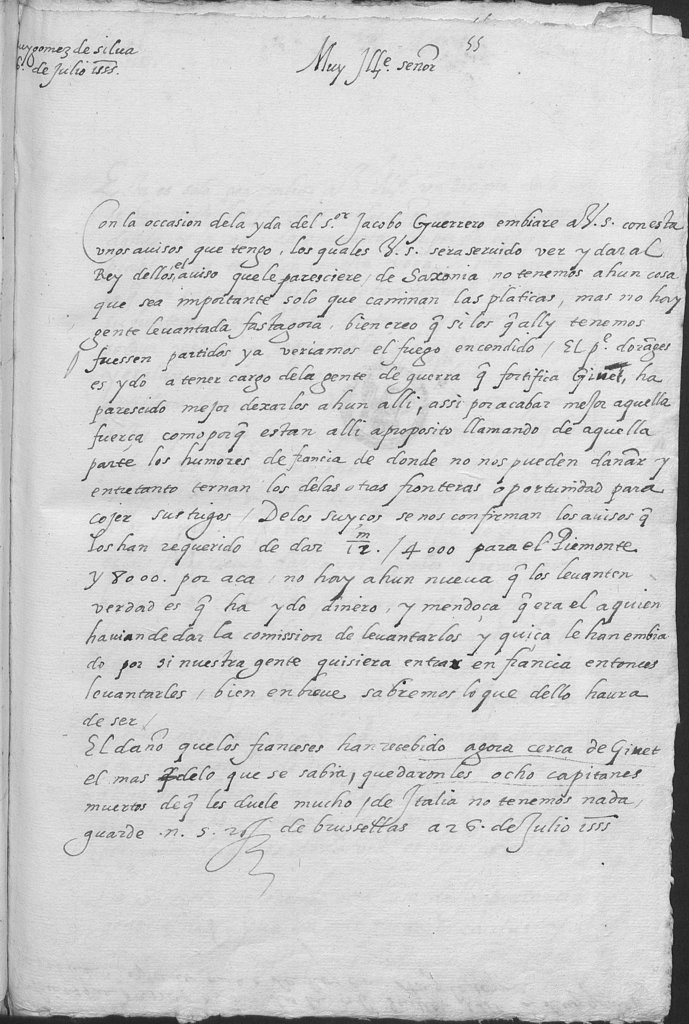 uygomez de silua
6. de Julio 1555.
55
Muy Ille. señor
Con la occasion dela yda del s.or Jacobo Guerrero embiare a V. s. con esta
unos auisos que tengo, los quales V. s. sera seruido ver y dar al
Rey dellos el auiso quele paresciere / de Saxonia no tenemos ahun cosa
que sea importante solo que caminan las platicas, mas no hay
gente leuantada fastagora, bien creo q̃ si los q̃ ally tenemos
fuessen partidos ya veriamos el fuego encendido / El p.e dorãges
es ydo a tener cargo dela gente de guerra q̃ fortifica Giuet, ha
parescido mejor dexarlos ahun alli, assi por acabar mejor aquella
fuerça como porq̃ estan alli aproposito llamando de aquella
parte los humores de francia de donde no nos pueden danãr y
entretanto ternan los delas otras fronteras oportunidad para
cojer sus tugos / Delos suycos se nos confirman los auisos q̃
los han requerido de dar 12 m. / 4000 para el Piemonte
y 8000. por aca, no hay ahun nueua q̃ los leuanten
verdad es q̃ ha ydo dinero, y mendoça q̃ era el a quien
hauian de dar la comission de leuantarlos y quiça le han embia
do por si nuestra gente quisiera entrar en francia entonces
leuantarles / bien en breue sabremos lo que dello haura
de ser /
El daño quelos franceses han recebido agora cerca de Giuet
el mas delo que se sabia, quedaronles ocho capitanes
muertos de q̃ les duele mucho / de Italia no tenemos nada,
guarde .n. s. de brussellas a 26. de Julio 1555